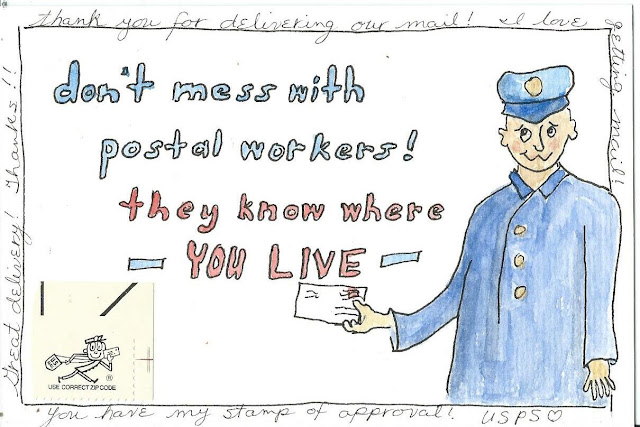 thank you for delivering our mail! I love
getting mail!
don't mess with
postal workers!
they know where
- YOU LIVE -
Great delivery! Thanks!!
USE CORRECT ZIP CODE
®
You have my stamp of approval! USPS♡